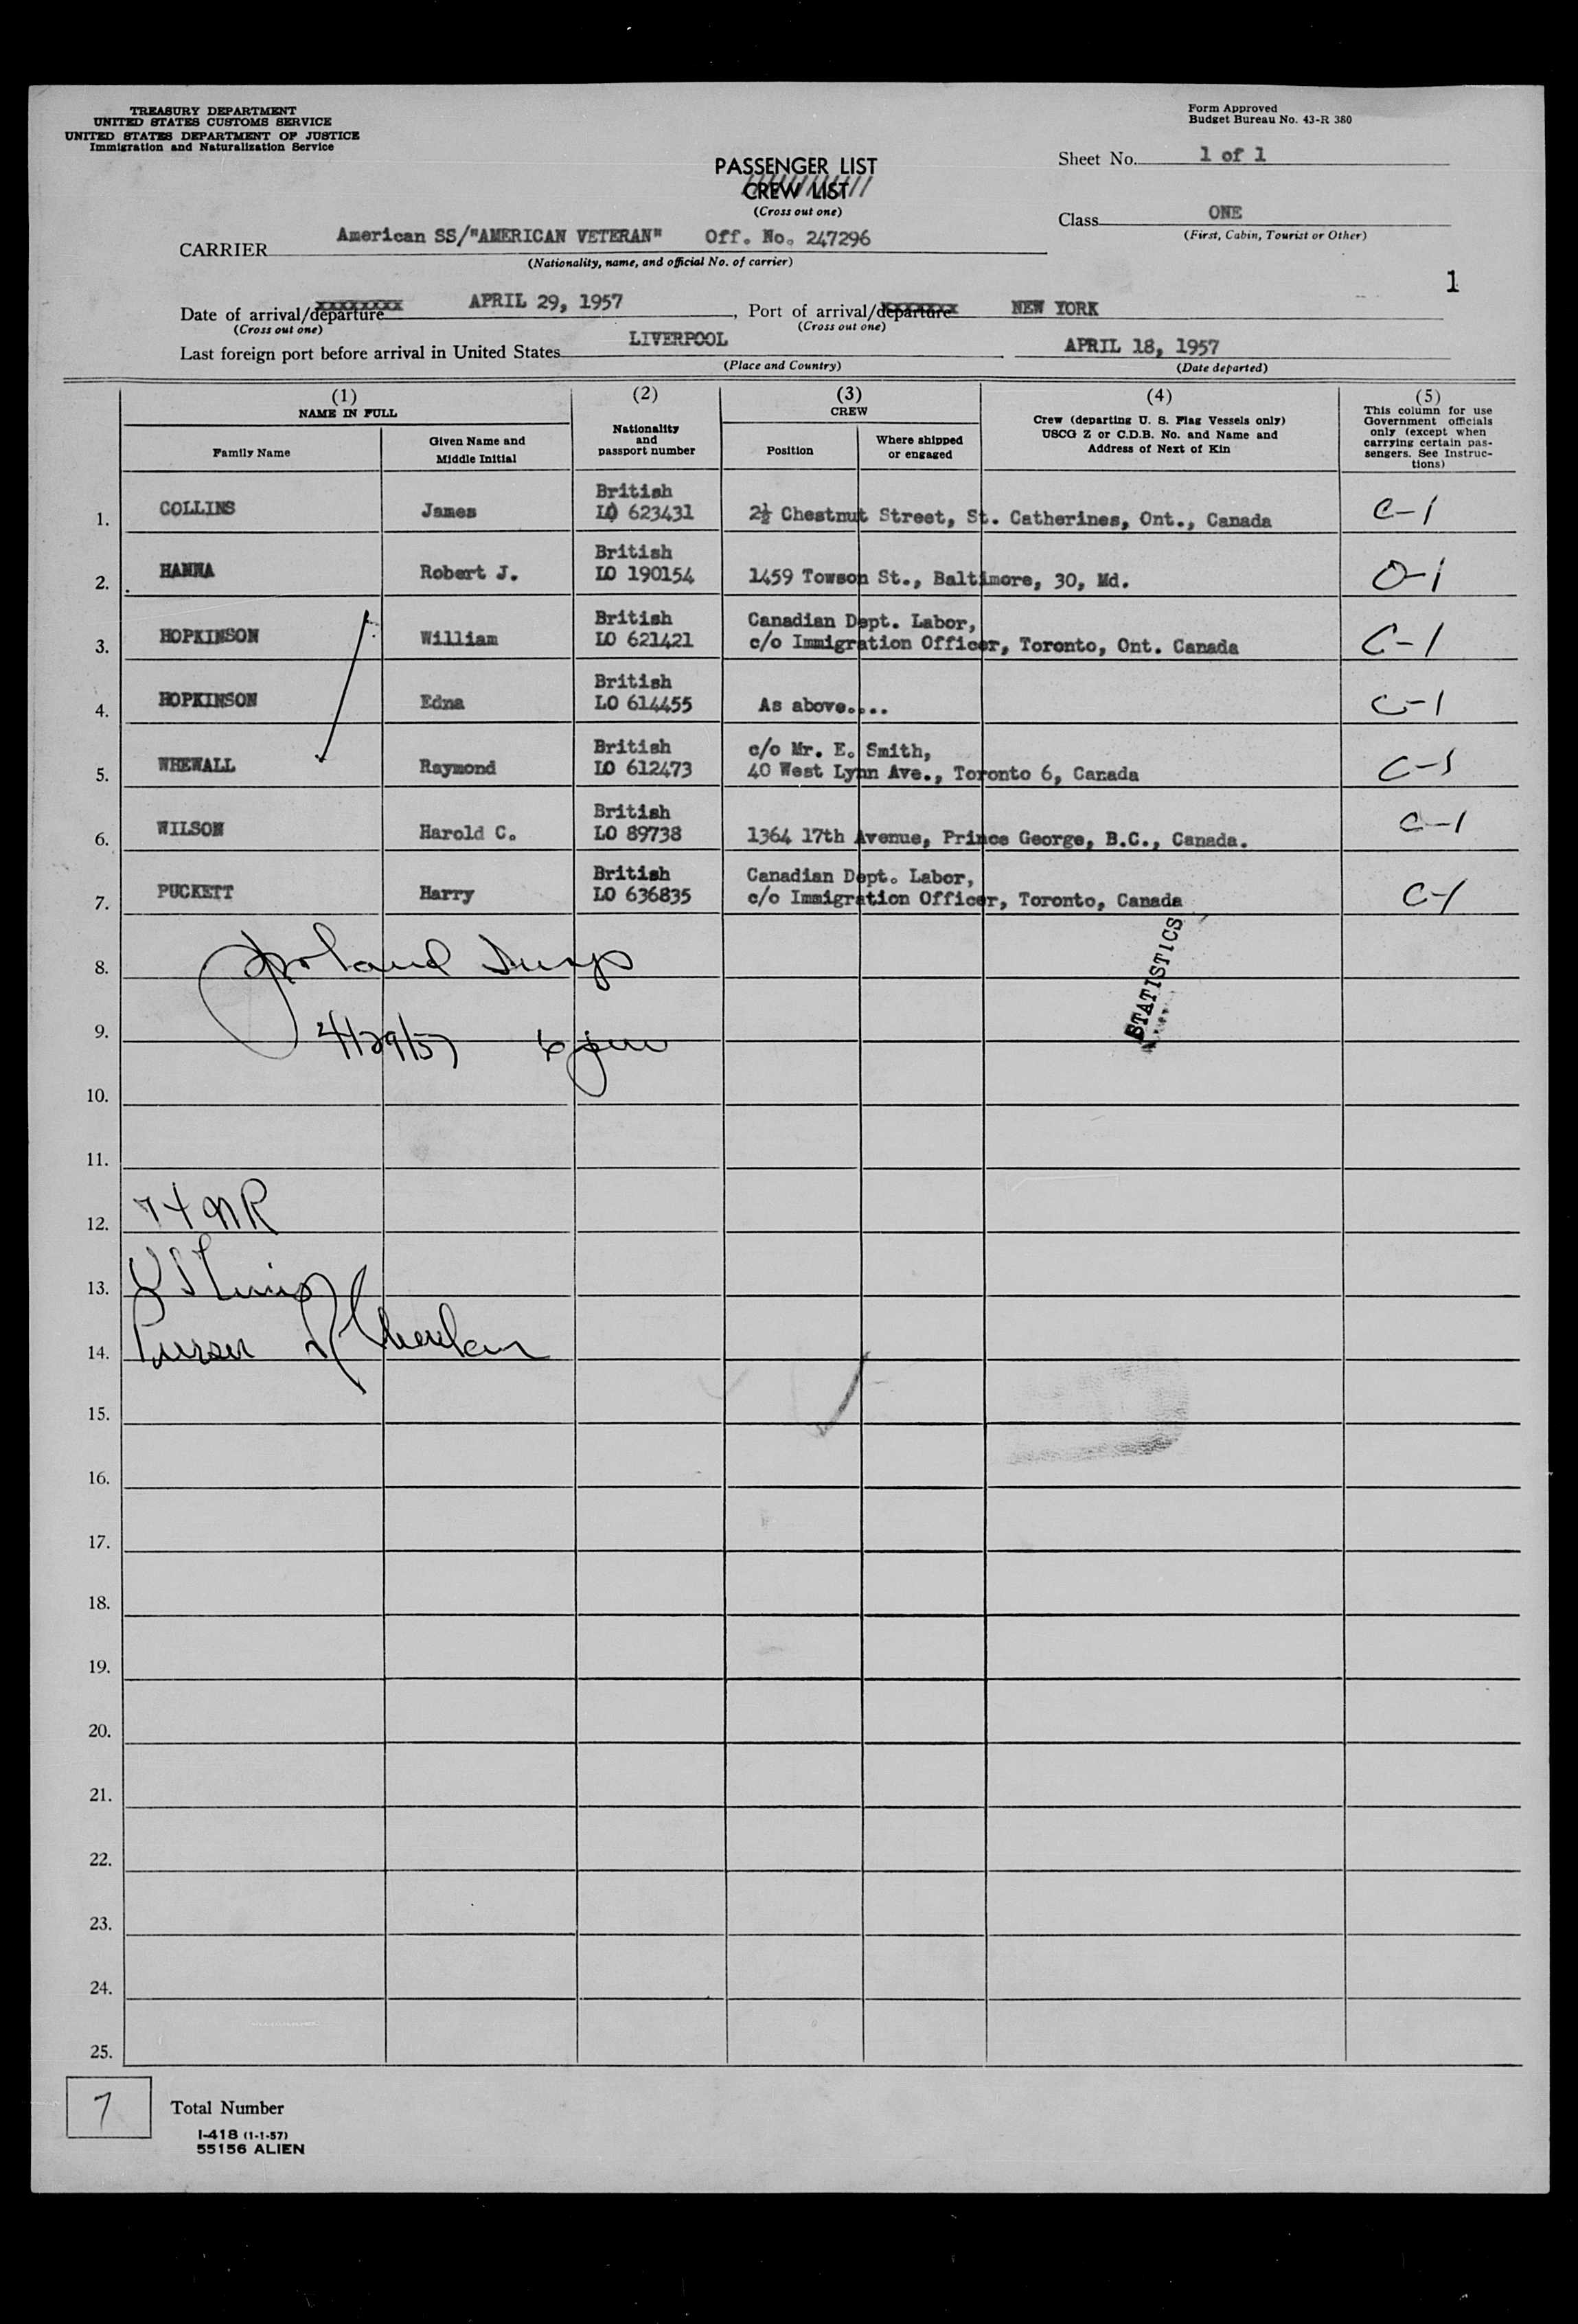 TREASURY DEPARTMENT
UNITED STATES CUSTOMS SERVICE
UNITED STATES DEPARTMENT OF JUSTICE
Immigration and Naturalization Service
Form Approved
Budget Bureau No. 43-R 380
PASSENGER LIST
CREW LIST
(Cross out one)
Sheet No. 1 of 1
Class ONE
(First, Cabin, Tourist or Other)
CARRIER American SS/"AMERICAN VETERAN" Off. No. 247296
(Nationality, name, and official No. of carrier)
1
Date of arrival/departure APRIL 29, 1957, Port of arrival/departure NEW YORK
(Cross out one) (Cross out one)
Last foreign port before arrival in United States LIVERPOOL APRIL 18, 1957
(Place and Country) (Date departed)
(1) NAME IN FULL
Family Name
Given Name and Middle Initial
(2) Nationality and passport number
(3) CREW
Position
Where shipped or engaged
(4) Crew (departing U. S. Flag Vessels only) USCG Z or C.D.B. No. and Name and Address of Next of Kin
(5) This column for use Government officials only (except when carrying certain passengers. See Instructions)
1. COLLINS James British LO 623431 2½ Chestnut Street, St. Catherines, Ont., Canada C-1
2. HANNA Robert J. British LO 190154 1459 Towson St., Baltimore, 30, Md. O-1
3. HOPKINSON William British LO 621421 Canadian Dept. Labor, c/o Immigration Officer, Toronto, Ont. Canada C-1
4. HOPKINSON Edna British LO 614455 As above.... C-1
5. WHEWALL Raymond British LO 612473 c/o Mr. E. Smith, 40 West Lynn Ave., Toronto 6, Canada C-1
6. WILSON Harold C. British LO 89738 1364 17th Avenue, Prince George, B.C., Canada. C-1
7. PUCKETT Harry British LO 636835 Canadian Dept. Labor, c/o Immigration Officer, Toronto, Canada C-1
8.
STATISTICS
9. 4/29/57 6 pm
10.
11.
12.
13.
14. Purser
15.
16.
17.
18.
19.
20.
21.
22.
23.
24.
25.
7 Total Number
I-418 (1-1-57)
55156 ALIEN